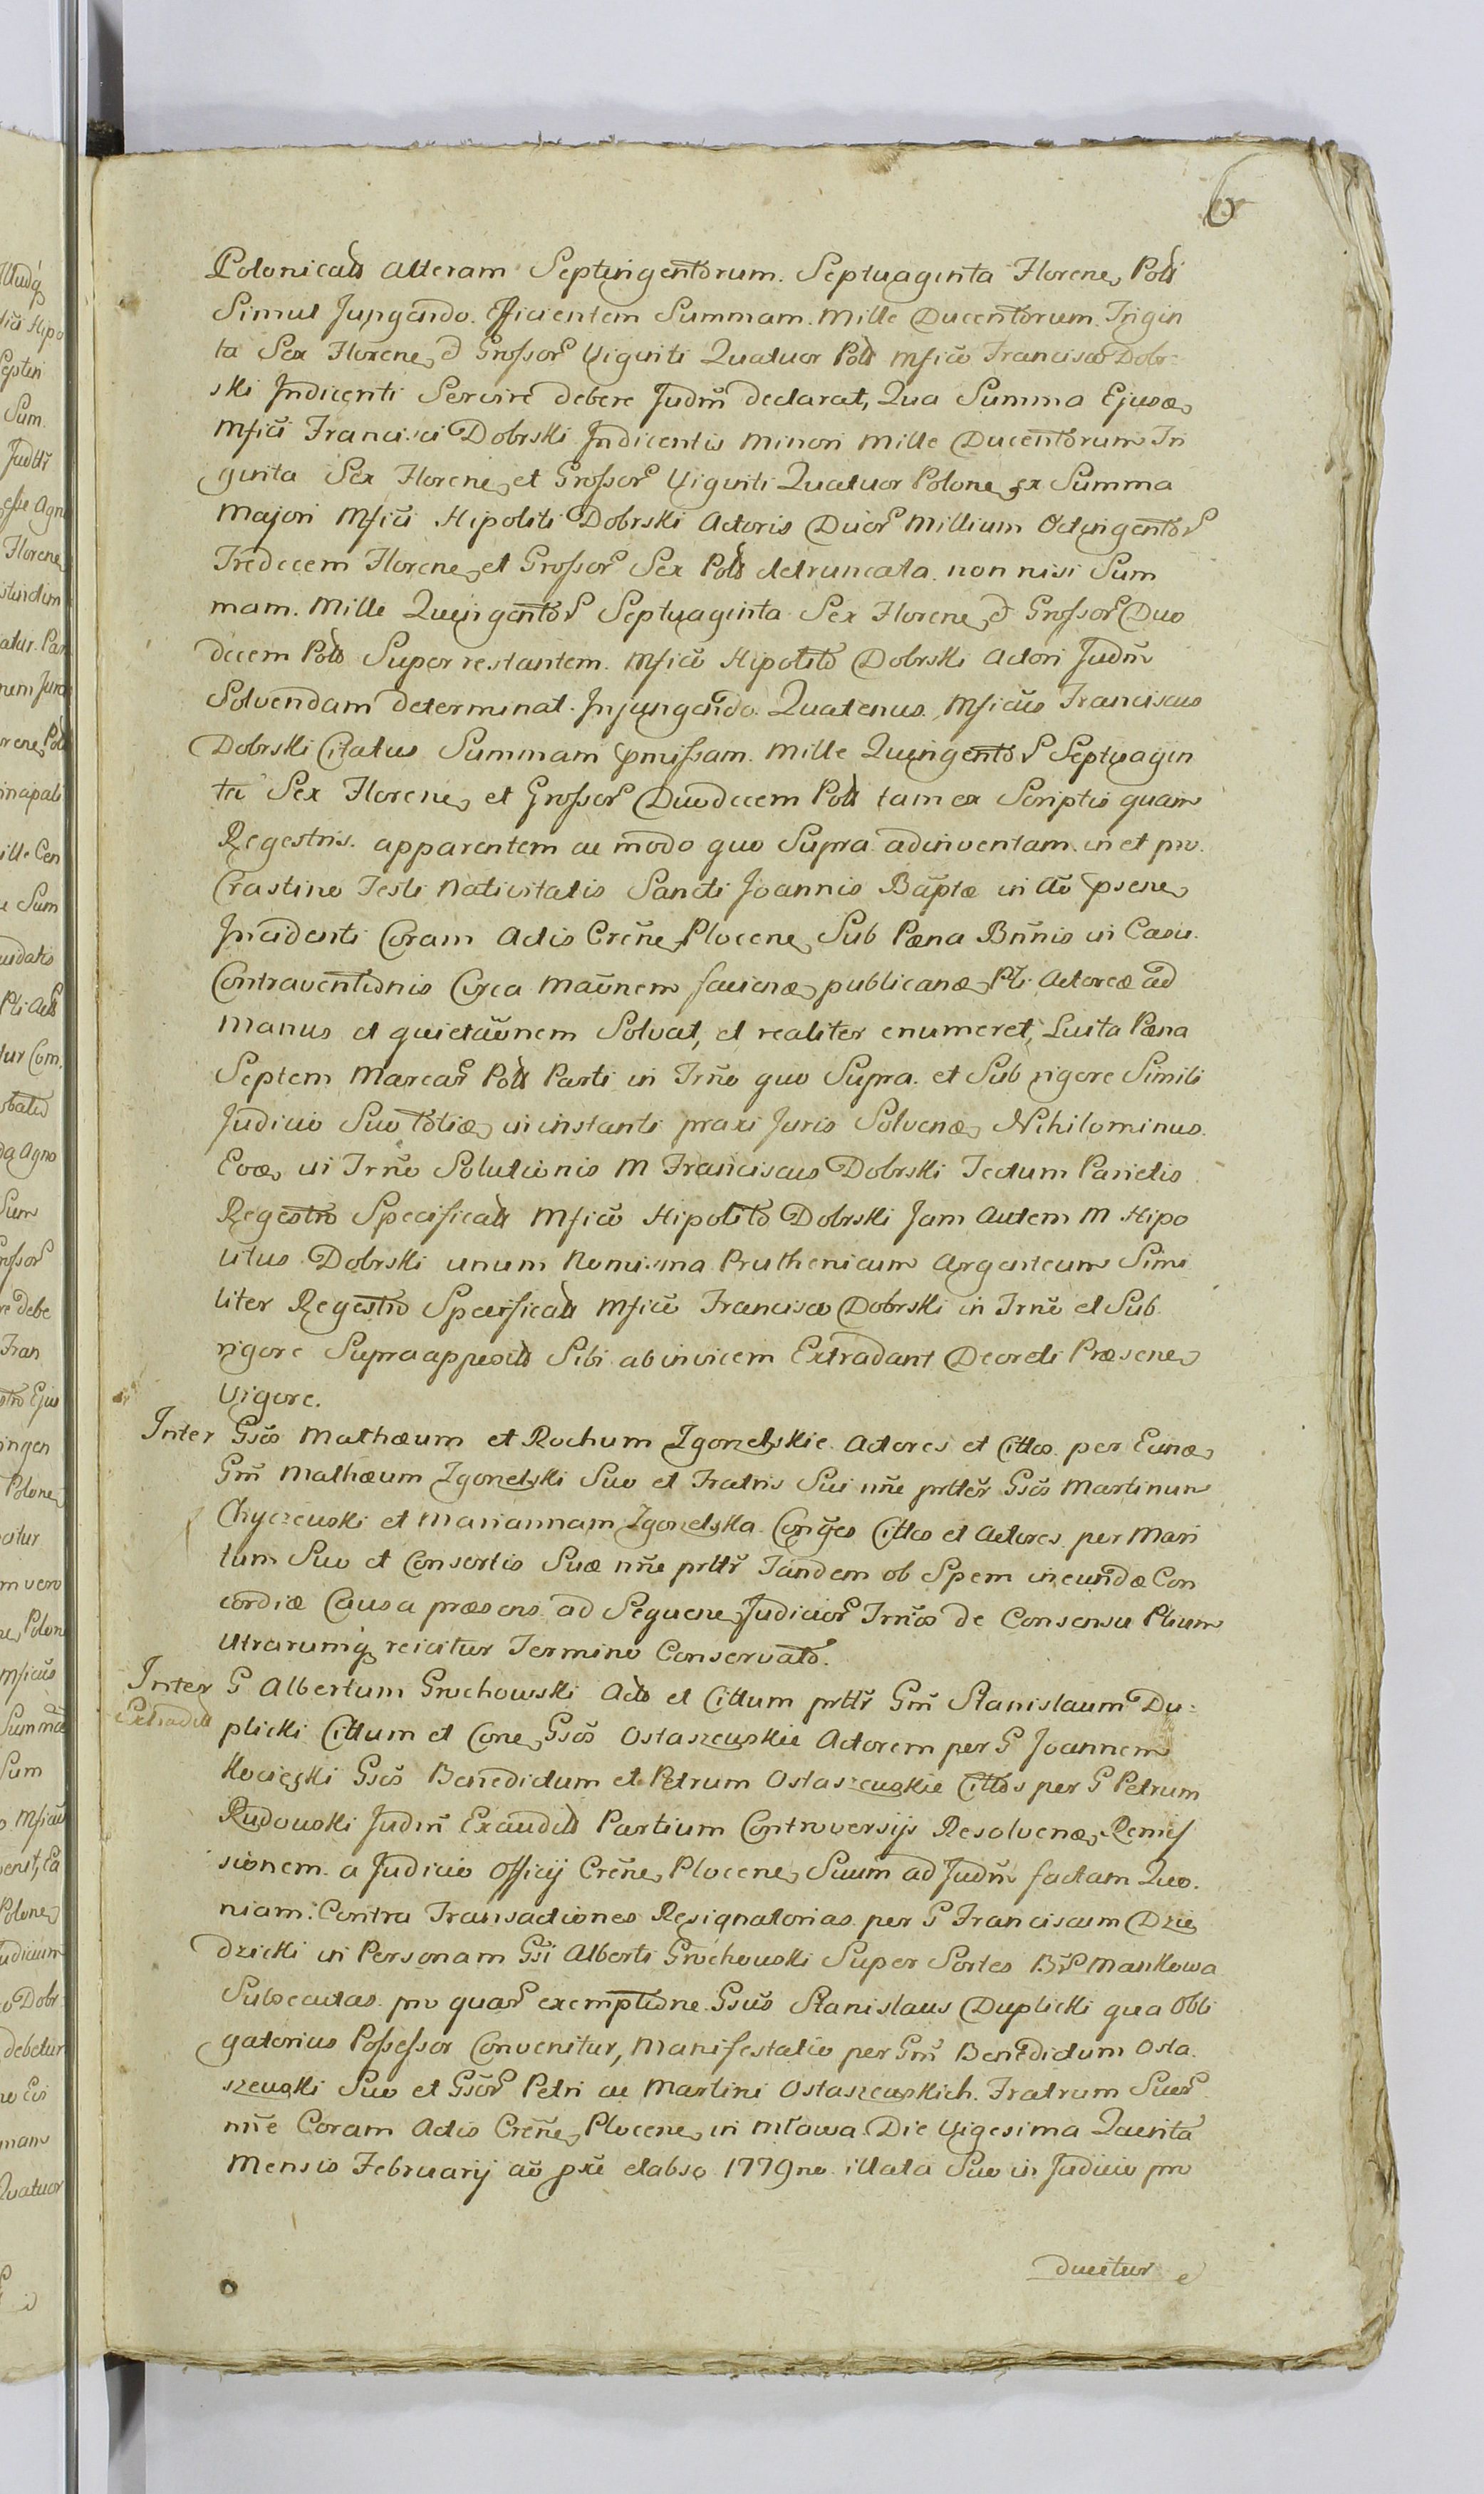 6
Polonicalt Alteram Septingentorum. Septuaginta Florene, Polł
Simul Jungendo. Efficientem Summam. Mille Ducentorum. Trigin
ta Sex Florene, et Grossor Viginti Quatuor Polł Mficō Francisco Dobr=
ski Indicenti Servire debere Judm declarat, Qua Summa Ejusde,
Mfici Francisci Dobrski Indicentis Minori Mille Ducentorum Tri
ginta Sex Florene, et Grossor Viginti Quatuor Polone, ex Summa
Majori Mfici Hipoliti Dobrski Actoris Duor Millium Octingentor
Tredecem Florene, et Grossor Sex Polł detruncata. non nisi Sum
mam. Mille Quingentor Septuaginta Sex Florene, et Grossor Duo
decem Polł Super restantem. Mficō Hipolito Dobrski Actori Judm̃
Solvendam determinat. Injungendo. Quatenus. Mficus Franciscus
Dobrski Citatus Summam pmissam. Mille Quingentor Septuagin
ta Sex Florene, et Grossor Duodecem Polł tam ex Scriptis quam
Regestris. apparentem ac modo quo Supra adinventam. in et pro.
Crastino Festi Nativitatis Sancti Joannis Baptæ in Aō psene,
Incidenti Coram Actis Crēne, Plocene, Sub Pæna Bñnis in Casu.
Contraventionis Circa Maūnem faciende, publicande, Pti Actoreæ ad
Manus et quietaūnem Solvat, et realiter enumeret, Luita Pæna
Septem Marcar Polł Parti in Trñō quo Supra. et Sub rigore Simili
Judicio Suo toties, in instanti praxi Juris Solvende, Nihilominus.
Eode, in Trñō Solutionis M Franciscus Dobrski Tectum Parietis
Regestro Specificatt Mficō Hipolito Dobrski Jam Autem M Hipo
litus Dobrski unum Nomisma Pruthenicum Argenteum Simi
liter Regestro Specificatt Mficō Francisco Dobrski in Trñō et Sub.
rigore Supraapposito Sibi abinvicem Extradant Decreti Præsene,
Vigore.
Inter Gsōs Mathæum et Rochum Zgorzelskie Actores et Cittos per Eunde,
Gm̃ Mathæum Zgorzelski Suo et Fratris Sui nñe prtter Gsōs Martinum
Chyczewski et Mariannam Zgorzelska Conges Cittos et Actores per Mari
tum Suo et Consortis Suæ nñe prttr Tandem ob Spem ineundæ Con
cordiæ Causa præsens ad Sequene, Judicior Trños de Consensu Ptium
Utrarumq, reicitur Termino Conservato.
Inter G Albertum Grochowski Acto et Cittum prttr Gm̃ Stanislaum Du=
plicki Cittum et Cone, Gsōs Ostaszewskie Actorem per G Joannem
Kocięcki Gsōs Benedictum et Petrum Ostaszewskie Cittos per G Petrum
Rudowski Judm̃ Exaudito Partium Controversijs Resolvende, Remis
sionem. a Judicio Officij Crēne, Plocene, Suum ad Judm̃ factam Quo.
niam. Contra Transactiones Resignatorias per G Franciscum Dzie
dzicki in Personam Gsi Alberti Grochowski Super Sortes Br Mankowa
Subsecutas. pro quar exemptione. Gsūs Stanislaus Duplicki qua Obli
gatorius Possessor Convenitur, Manifestatio per Gm̃ Benedictum Osta.
szewski Suo et Gsor Petri ac Martini Ostaszewskich. Fratrum Suor
nñe Coram Actis Crēne, Plocene, in Mława Die Vigesima Quinta
Mensis Februarij aō px̄e elapso 1779no illata Suo in Judicio pro
ducitur